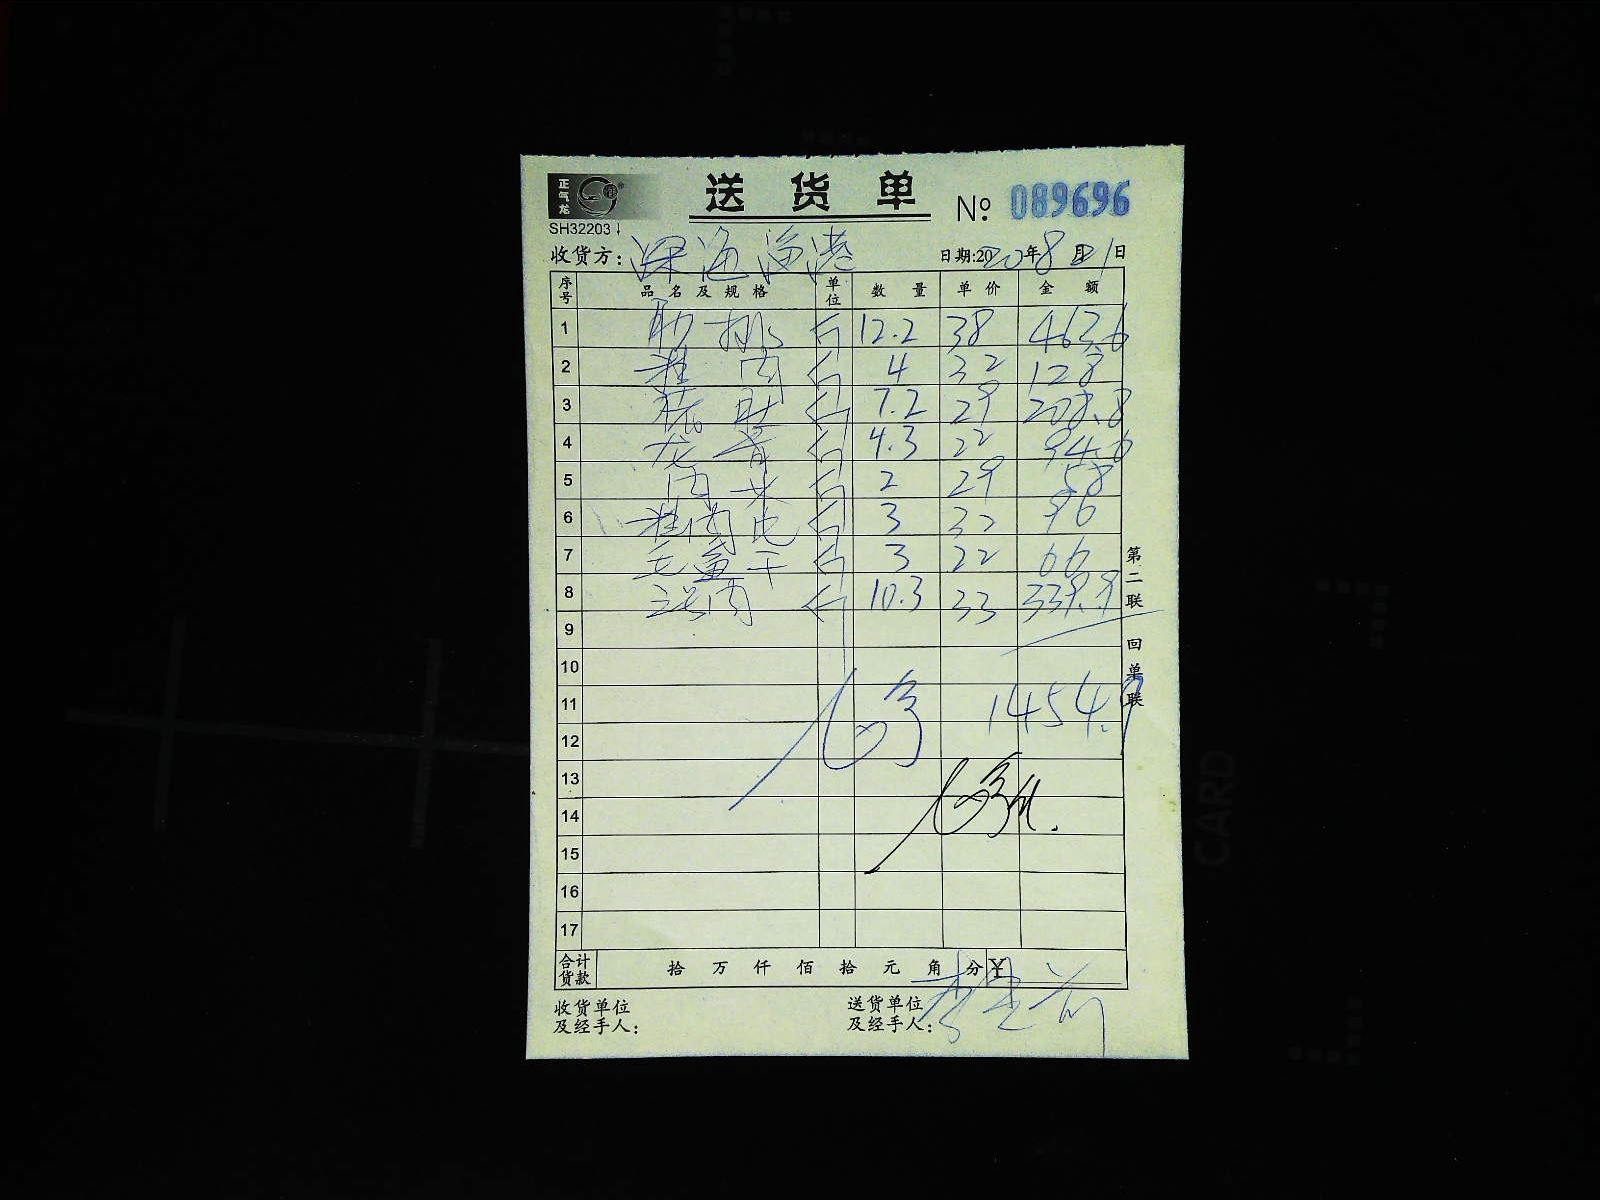 正气龙
送货单 № 089696
SH32203
收货方：深海渔港 日期:2020年8月21日
序号 品名及规格 单位 数量 单价 金额
1 肋排 斤 12.2 38 463.6
2 斤 4 32 128
3 斤 7.2 29 208.8
4 龙骨 斤 4.3 22 94.6
5 肉 斤 2 29 58
6 斤 3 32 96
7 毛鱼干 斤 3 22 66
8 斤 10.3 33 339.9
9
10
11 1454.9
12
13
14
15
16
17
合计货款 拾 万 仟 佰 拾 元 角 分 ¥
收货单位 送货单位
及经手人： 及经手人：
第二联 回单联
CARD